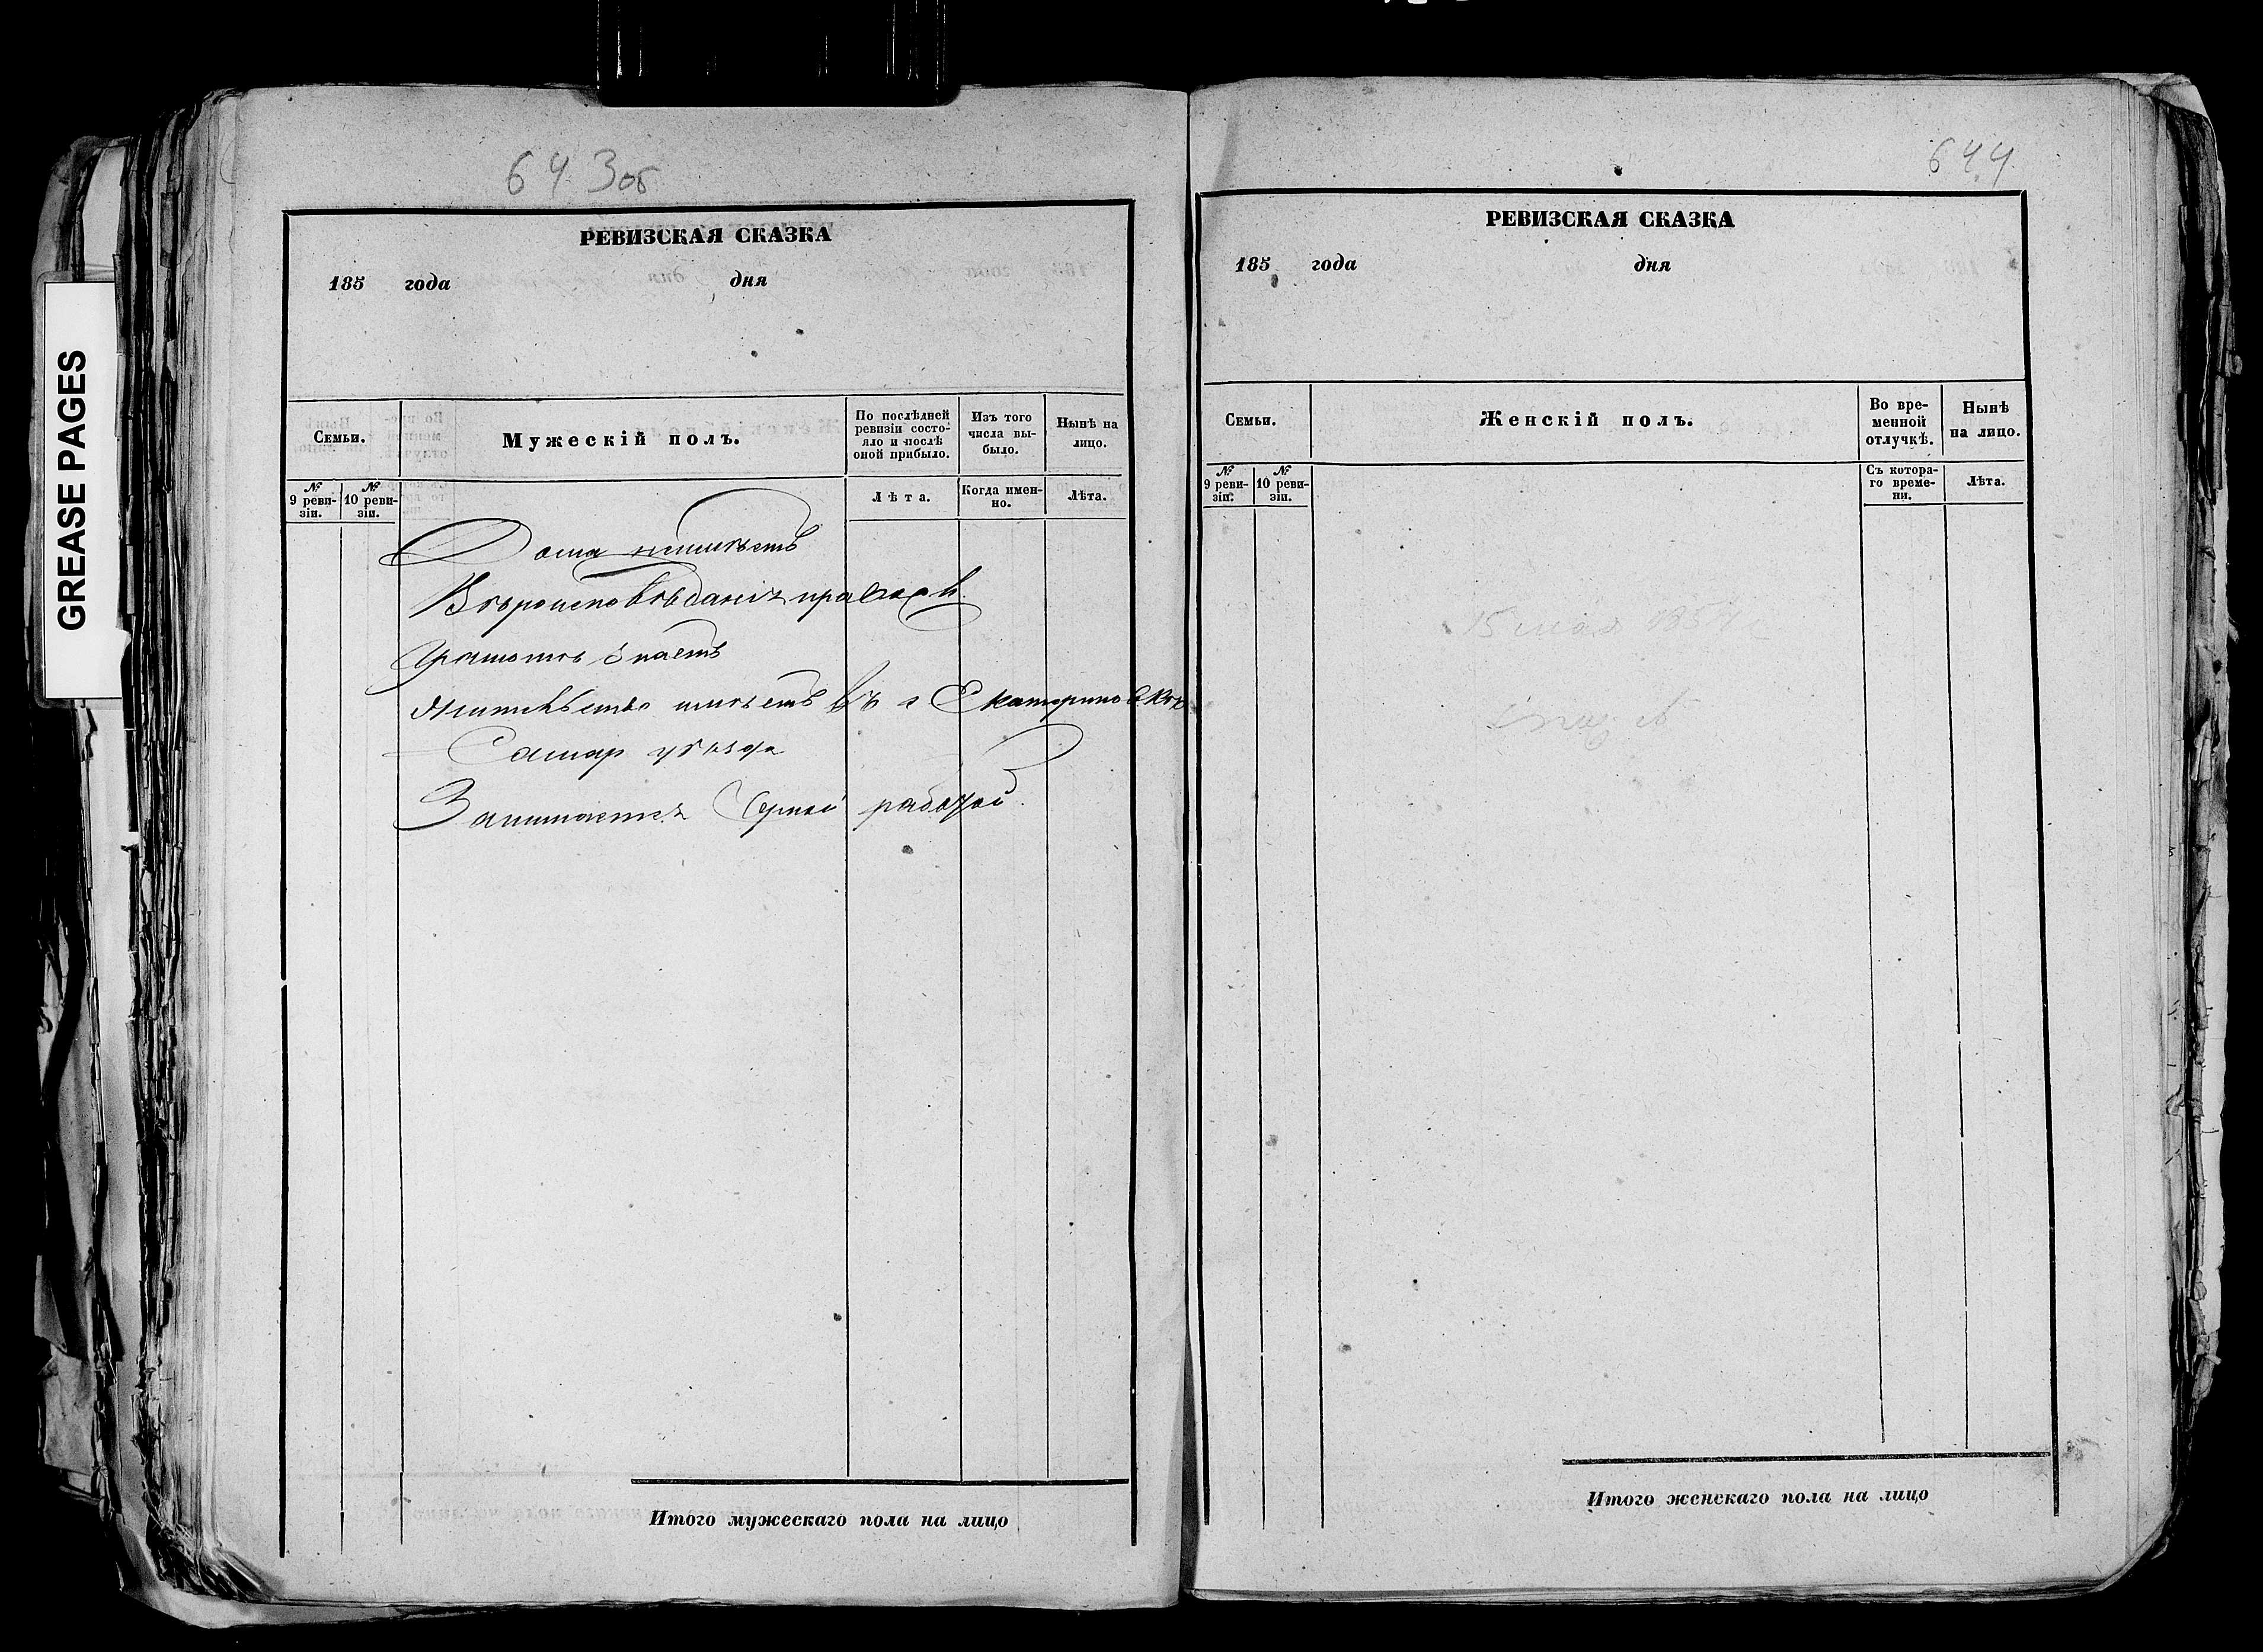 GREASE PAGES
643об
РЕВИЗСКАЯ СКАЗКА
185 года дня
Семьи.
Мужескій полъ.
По послѣдней ревизіи состо-
яло и послѣ оной прибыло.
Изъ того числа вы-
было.
Нынѣ на лицо.
№ 9 реви-
зіи.
№ 10 реви-
зіи.
Лѣта.
Когда имен-
но.
Лѣта.
Дома неимѣетъ
Вѣроисповѣданія правосл
Грамотѣ знаетъ
Жительство имѣетъ въ с Екатериновкѣ
Самар уѣзда
Занимается Черной работой
Итого мужескаго пола на лицо
644
РЕВИЗСКАЯ СКАЗКА
185 года дня
Семьи.
Женскій полъ.
Во вре-
менной
отлучкѣ.
Нынѣ
на лицо.
№ 9 реви-
зіи.
№ 10 реви-
зіи.
Съ котора-
го време-
ни.
Лѣта.
15 мая 185
Итого женскаго пола на лицо